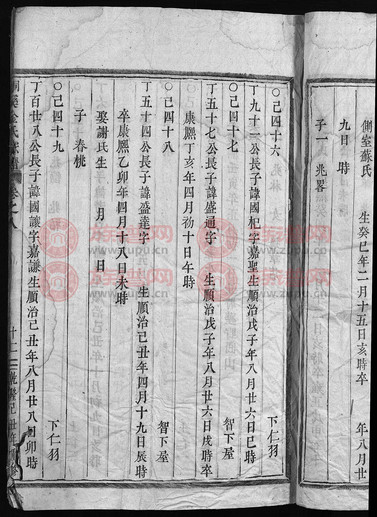 側室蘇氏 生癸巳年二月十五日亥時卒 年八月廿
九日 時
子一 兆畧
〇己四十六 下仁羽
丁九十一公長子諱國杞字嘉聖生順治戊子年八月廿六日巳時
〇己四十七 智下屋
丁五十七公長子諱盛通字 生順治戊子年八月廿六日戌時卒
康熙丁亥年四月初十日午時
〇己四十八 智下屋
丁五十四公長子諱盛達字 生順治己丑年四月十九日辰時
卒康熙乙卯年四月十八日未時
娶謝氏生 月 日
子 春桃
〇己四十九 下仁羽
丁百廿八公長子諱國讓字嘉謙生順治己丑年八月廿八日卯時
金氏 卷之
族谱网